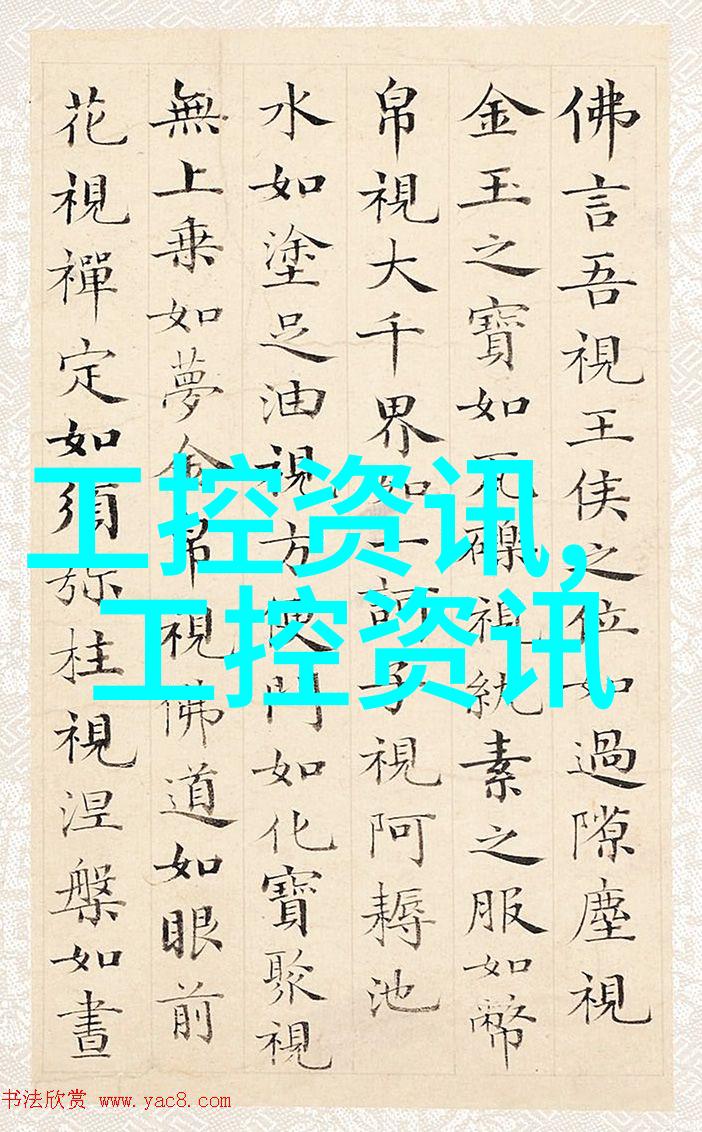 佛言吾視王侯之位如過隙塵視
金玉之寶如瓦礫視紈素之服如幣
帛視大千界如一訶子視阿耨池
水如塗足油視方便門如化寶聚視
無上乗如夢金帛視佛道如眼前
花視禪定如須弥柱視涅槃如晝
工控资讯,
工控资讯
书法欣赏 www.yac8.com